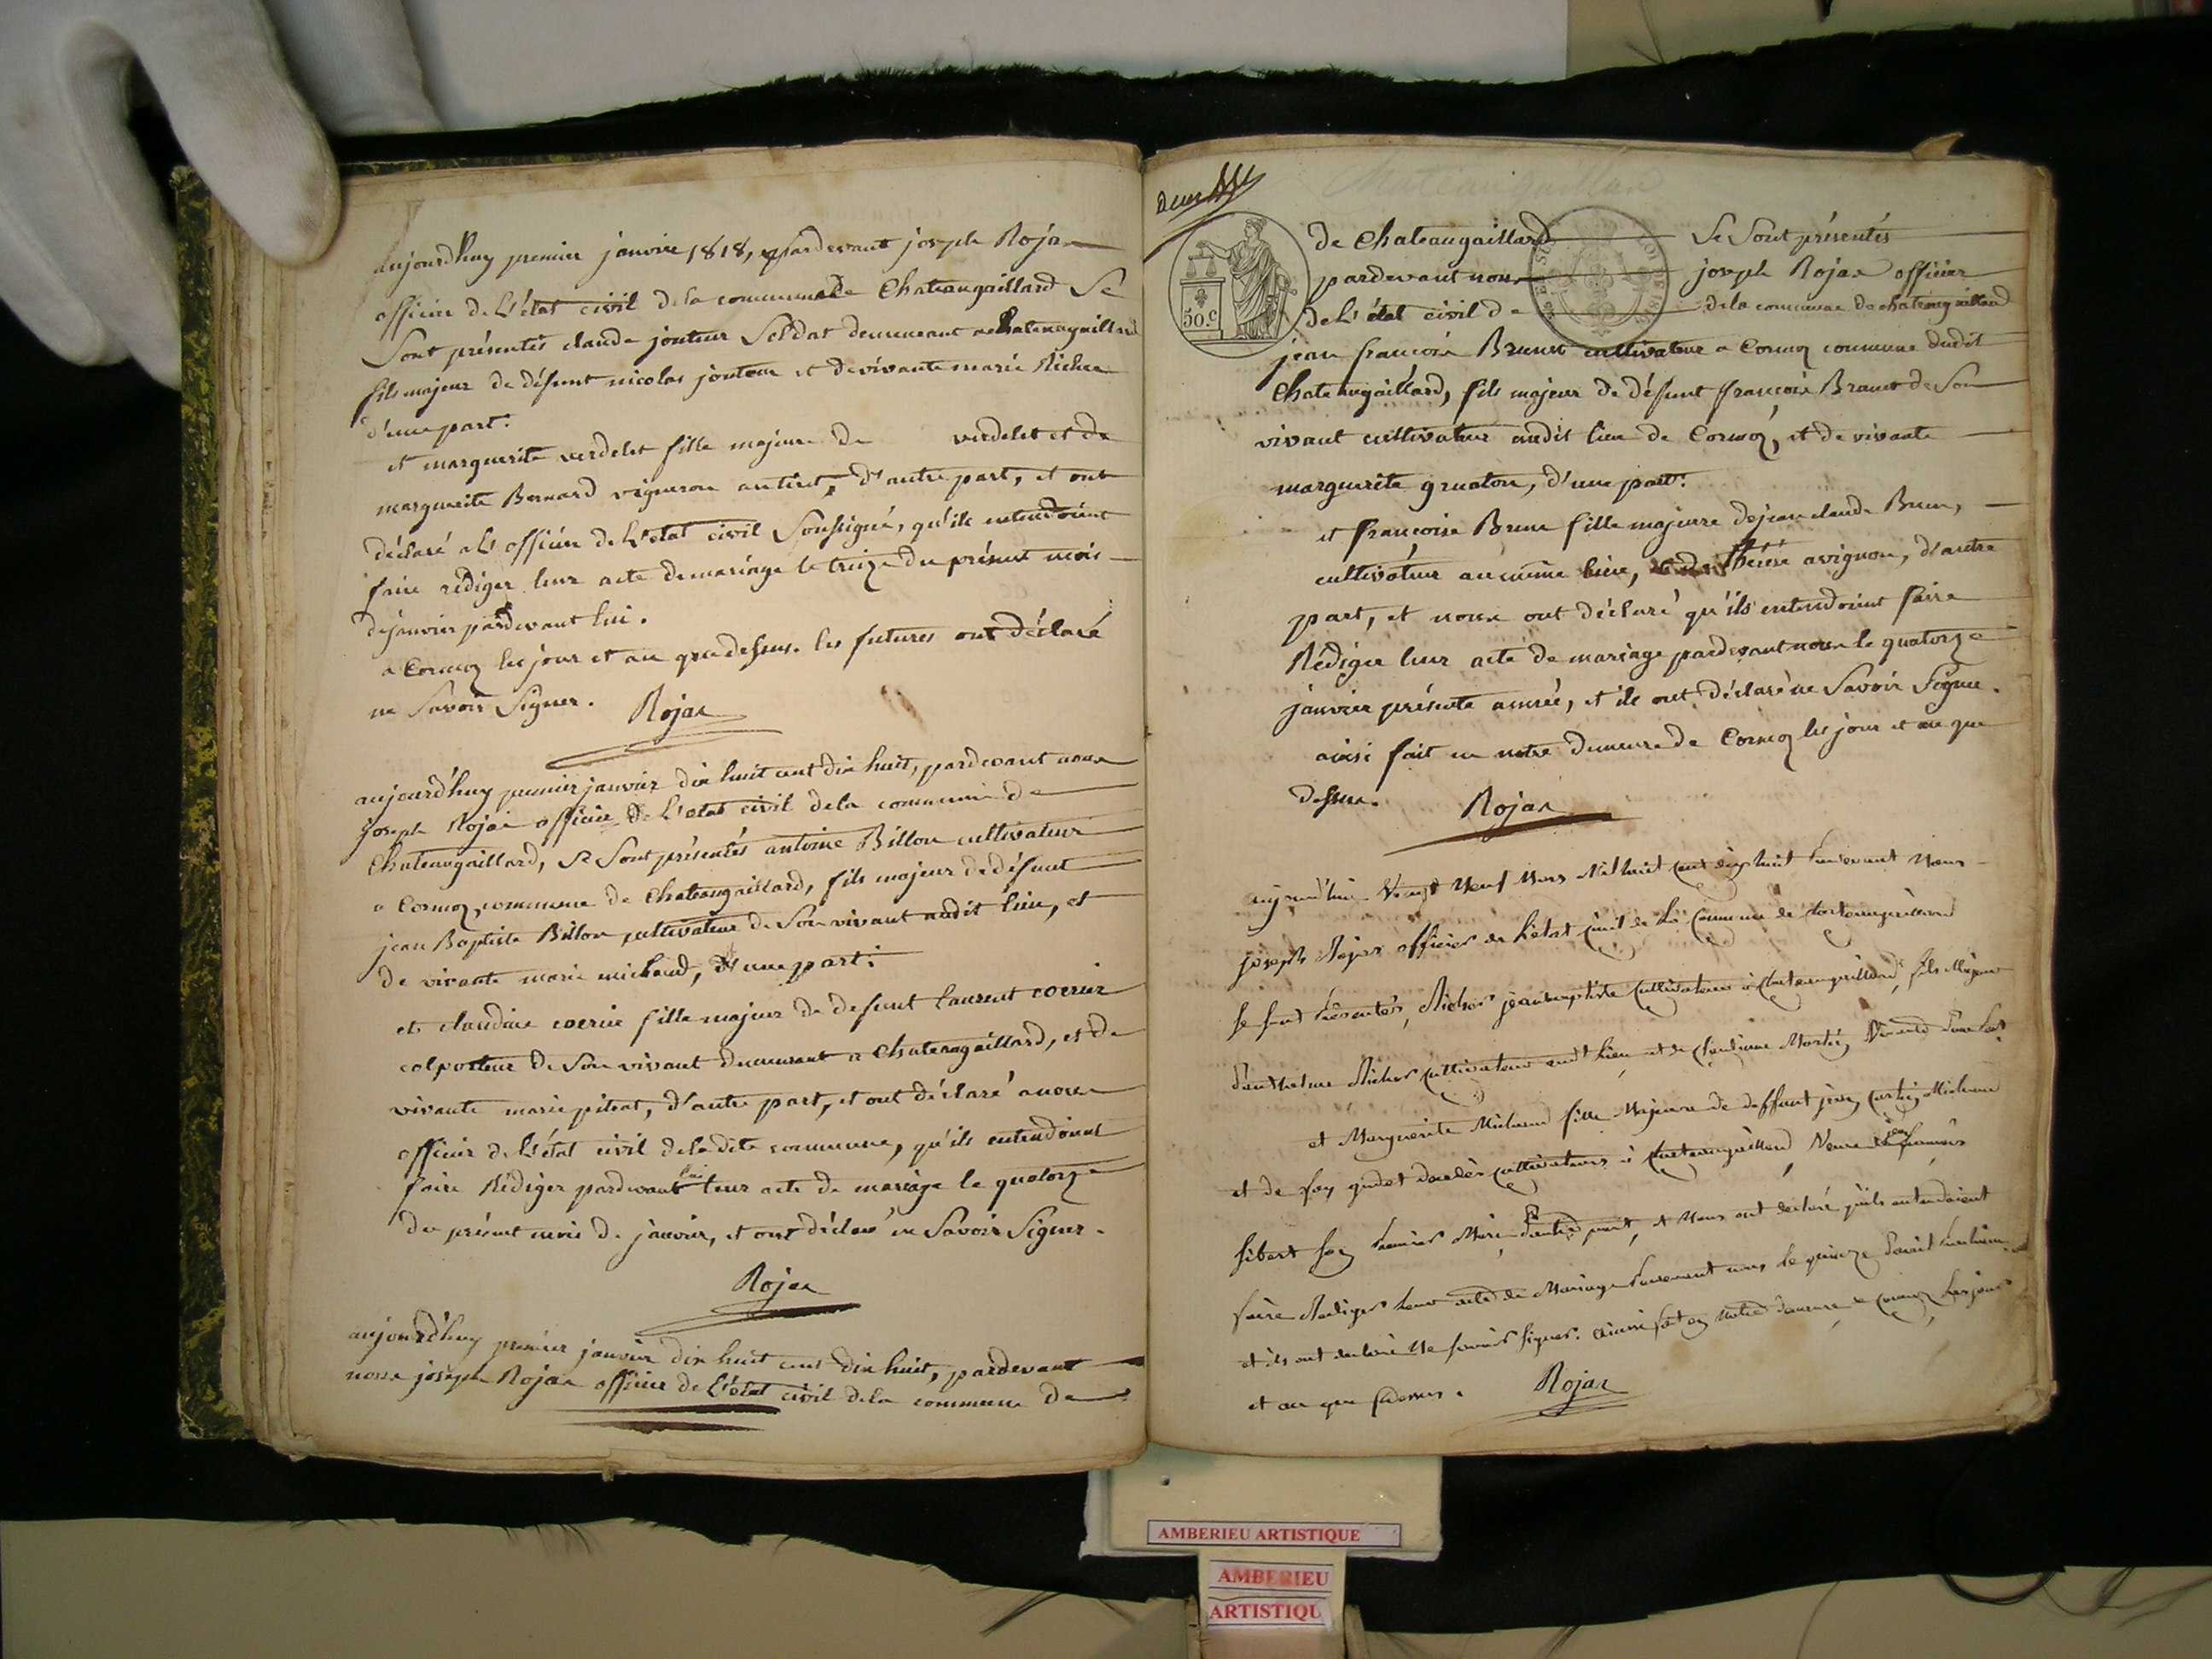 aujourdhuy premier janvier 1818, pardevant joseph Rojan
officier de L'état civil de la commune de Chateaugaillard Se
Sont présentés claude jonteur Soldat demeurant a Chateaugaillard
fils majeur de défunt nicolas jonteur et de vivante marie Richer
d'une part.
et marguerite verdelet fille majeure de verdelet et de
marguerite Bernard vigneron d'autre part, et ont
déclaré a L'officier de L'état civil Soussigné, qu'ils entendoient
faire rédiger leur acte de mariage le treize du présent mois
de janvier pardevant lui.
a Cormoz les jour et an que dessus. les futures ont déclaré
ne Savoir Signer. Rojan
aujourd'huy premier janvier dix huit cent dix huit, pardevant nous
joseph Rojan officier de L'état civil de la commune de
Chateaugaillard, Se Sont présentés antoine Billon cultivateur
a Cormoz, commune de Chateaugaillard, fils majeur de défunt
jean Baptiste Billon cultivateur de Son vivant audit lieu, et
de vivante marie michaud, d'une part.
et claudine fille majeur de defunt laurent
colporteur de Son vivant demeurant a Chateaugaillard, et de
vivante marie pitrat, d'autre part, et ont déclaré a nous
officier de L'état civil de ladite commune, qu'ils entendoient
faire Rédiger pardevant lui leur acte de mariage le quatorze
du présent mois de janvier, et ont déclaré ne Savoir Signer.
Rojan
aujourd'huy premier janvier dix huit cent dix huit, pardevant
nous joseph Rojan officier de L'état civil de la commune de
50.c
de Chateaugaillard Se Sont présentés
pardevant nous joseph Rojan officier
de L'état civil de de la commune de Chateaugaillard
jean françois Brunet cultivateur a Cormoz commune dudit
Chateaugaillard, fils majeur de défunt françois Brunet de Son
vivant cultivateur audit lieu de Cormoz, et de vivante
marguerite gruaton, d'une part.
et françoise Brun fille majeure de jean claude Brun,
cultivateur au même lieu, et de thérése avignon, d'autre
part, et nous ont déclaré qu'ils entendoient faire
Rédiger leur acte de mariage pardevant nous le quatorze
janvier présente année, et ils ont déclaré ne Savoir Signer.
ainsi fait en notre demeure de Cormoz les jour et an que
dessus. Rojan
aujourd'hui Vingt Neuf Mars Mil huit cent dix huit Pardevant Nous
joseph Rojan officier de l'état civil de la Commune de Chateaugaillard
Se sont Présentés, Richer jean baptiste Cultivateur à Chateaugaillard, fils Majeur
d'anthelme Richer Cultivateur audt lieu et de Claudine d'une Part
et Marguerite Michaud fille Majeure de deffunt jean Michaud
et de cultivateurs à Chateaugaillard, Veuve de françois
Sibert son Premier Mari, d'autre part, et Nous ont déclaré qu'ils entendoient
faire Rediger leur acte de Mariage Pardevant nous le quinze d'avril Prochain
et ils ont declaré Ne savoir signer. ainsi fait en notre demeure a Cormoz Les jour
et an que dessus. Rojan
AMBERIEU ARTISTIQUE
AMBERIEU
ARTISTIQU